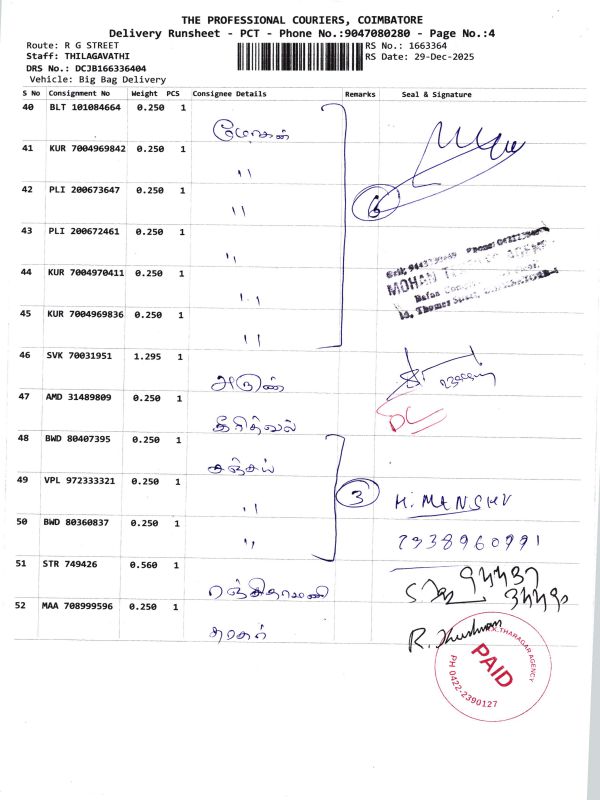 THE PROFESSIONAL COURIERS, COIMBATORE
Delivery Runsheet - PCT - Phone No.:9047080280 - Page No.:4
Route: R G STREET
RS No.: 1663364
Staff: THILAGAVATHI
RS Date: 29-Dec-2025
DRS No.: DCJB166336404
Vehicle: Big Bag Delivery
S No Consignment No Weight PCS Consignee Details Remarks Seal & Signature
40 BLT 101084664 0.250 1 மோகன்
41 KUR 7004969842 0.250 1 ,,
42 PLI 200673647 0.250 1 ,, 6
43 PLI 200672461 0.250 1 ,,
44 KUR 7004970411 0.250 1 ,, MOHAN
45 KUR 7004969836 0.250 1 ,,
46 SVK 70031951 1.295 1 அருண்
47 AMD 31489809 0.250 1 DC
48 BWD 80407395 0.250 1 சஞ்சய்
49 VPL 972333321 0.250 1 ,, 3 H. MANSHU
50 BWD 80360837 0.250 1 ,, 7938960991
51 STR 749426 0.560 1
52 MAA 708999596 0.250 1
PAID
PH 0422-2390127